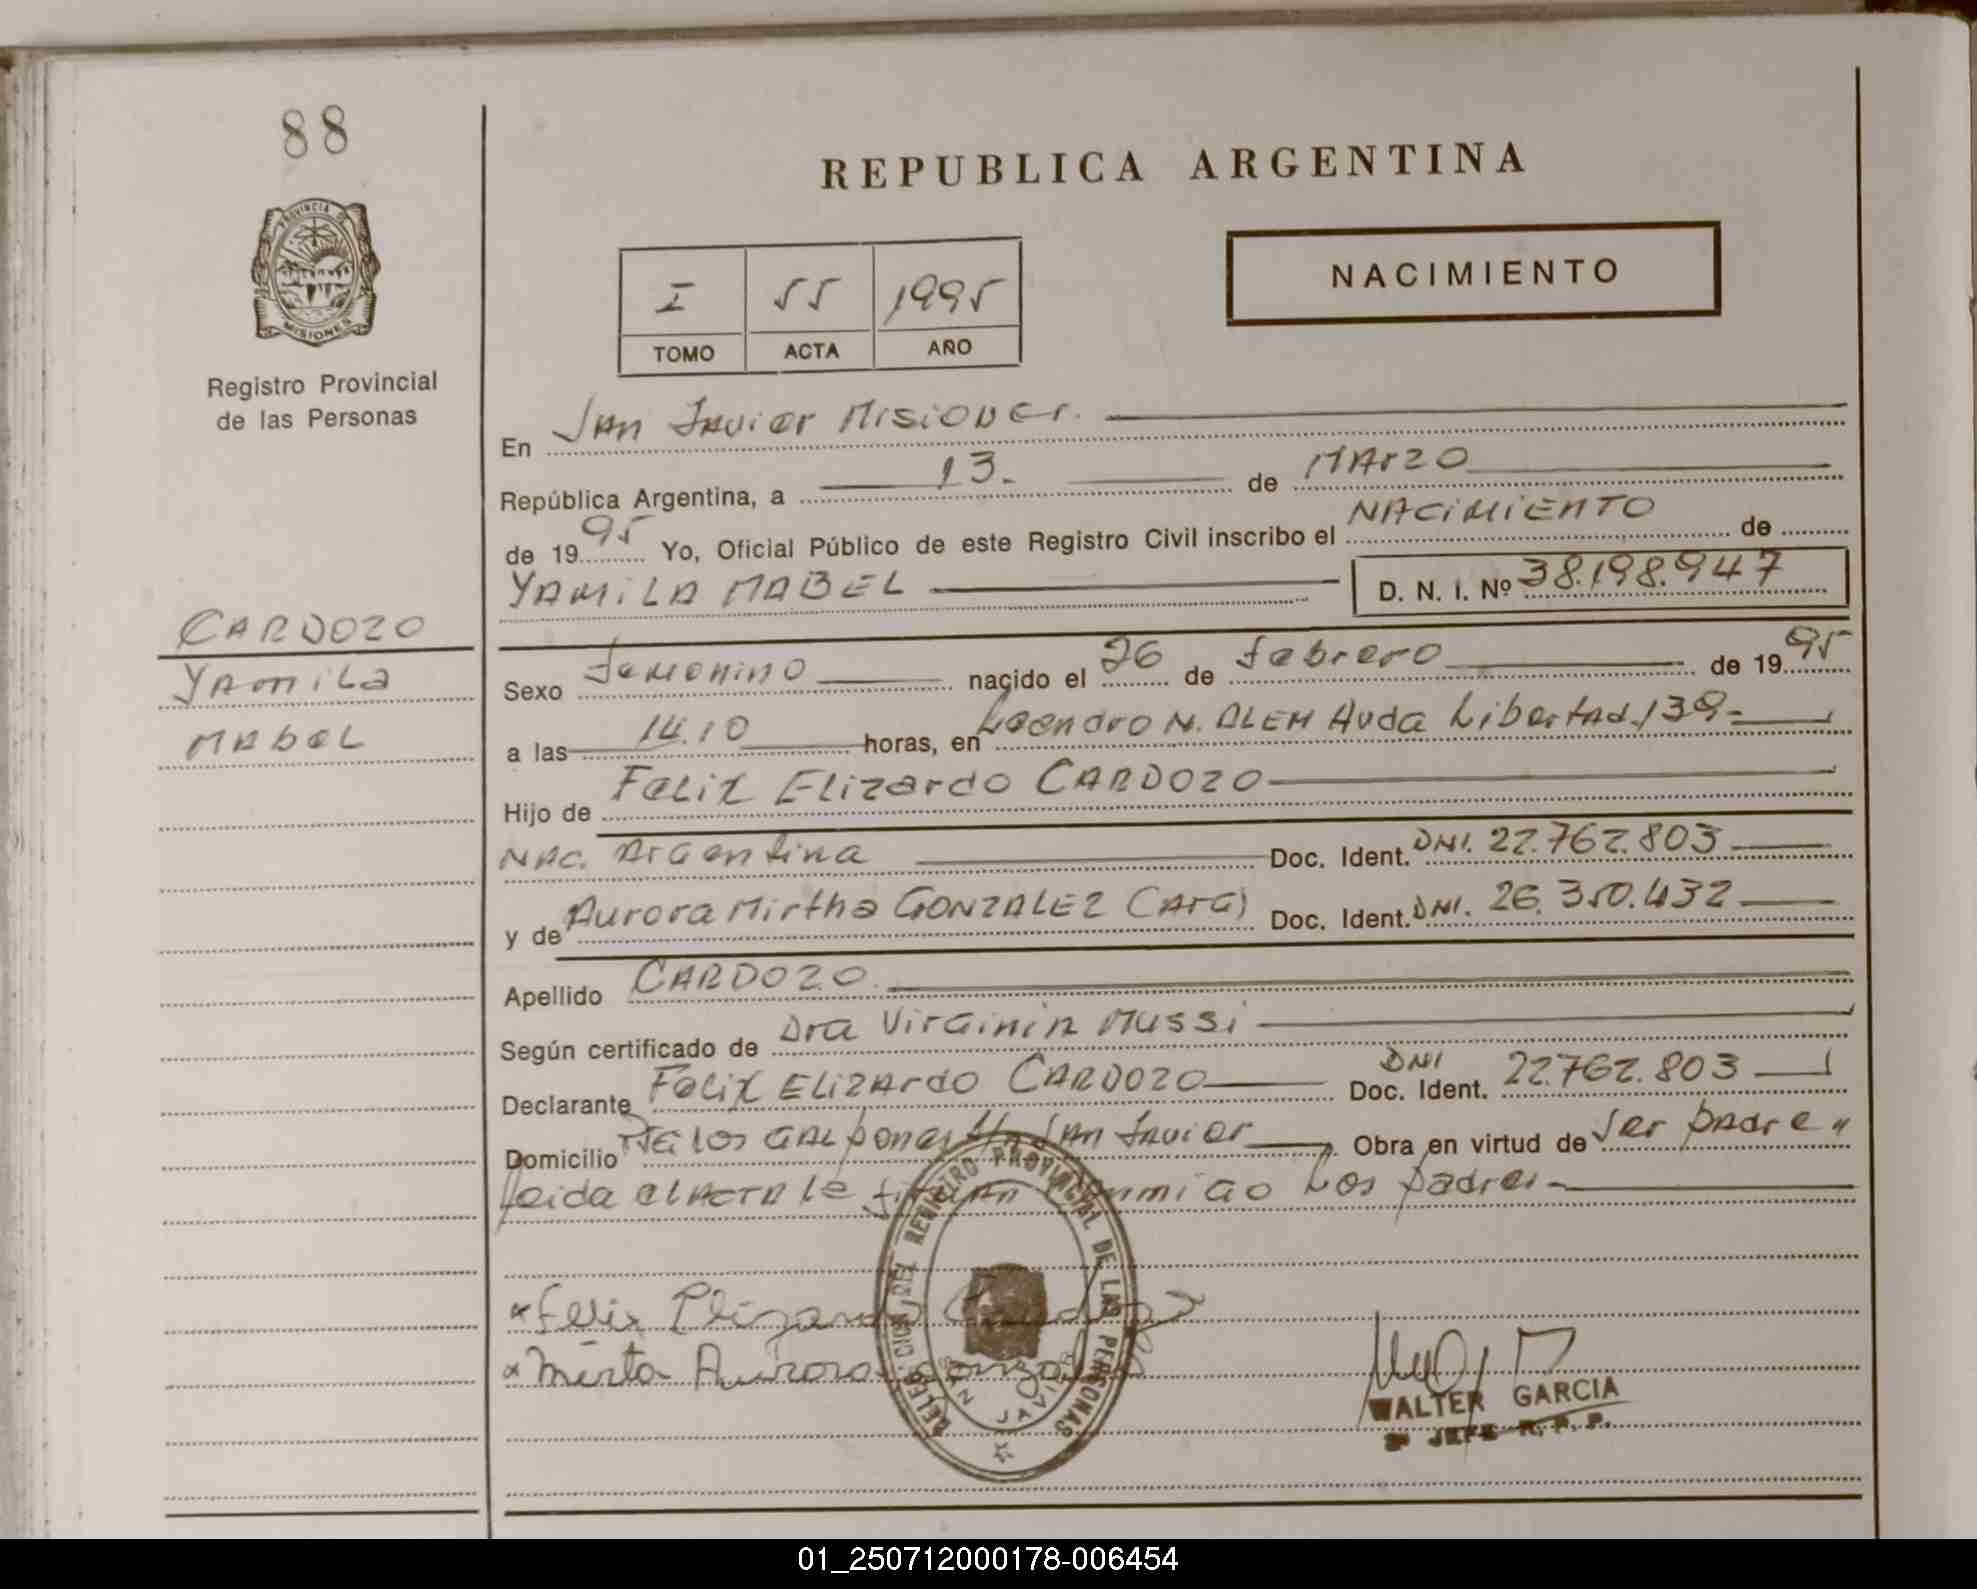 88
REPUBLICA ARGENTINA
PROVINCIA DE
MISIONES
NACIMIENTO
I 55 1995
TOMO ACTA AÑO
Registro Provincial
de las Personas
En San Javier Misiones.
República Argentina, a 13. de Marzo
de 1995 Yo, Oficial Público de este Registro Civil inscribo el NACIMIENTO de
YAMILA MABEL D. N. I. Nº 38.198.947
CARDOZO
Yamila
Mabel
Sexo femenino nacido el 26 de febrero de 1995
a las 14.10 horas, en Leandro N. ALEM Avda Libertad 139
Hijo de Felix Elizardo CARDOZO
NAC. Argentina Doc. Ident. DNI. 22.762.803
y de Aurora Mirtha GONZALEZ (Arg) Doc. Ident. DNI. 26.350.432
Apellido CARDOZO
Según certificado de Dra Virginia Mussi
Declarante Felix Elizardo CARDOZO Doc. Ident. DNI 22.762.803
Domicilio los Galpones San Javier Obra en virtud de ser padre
leida el acta le firman conmigo los padres
Felix Elizardo Cardozo
Mirta Aurora Gonzalez
DELEGACION DEL REGISTRO PROVINCIAL DE LAS PERSONAS
SAN JAVIER
WALTER GARCIA
JEFE R. P. P.
01_250712000178-006454